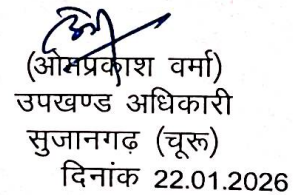 (ओमप्रकाश वर्मा)
उपखण्ड अधिकारी
सुजानगढ़ (चूरू)
दिनांक 22.01.2026